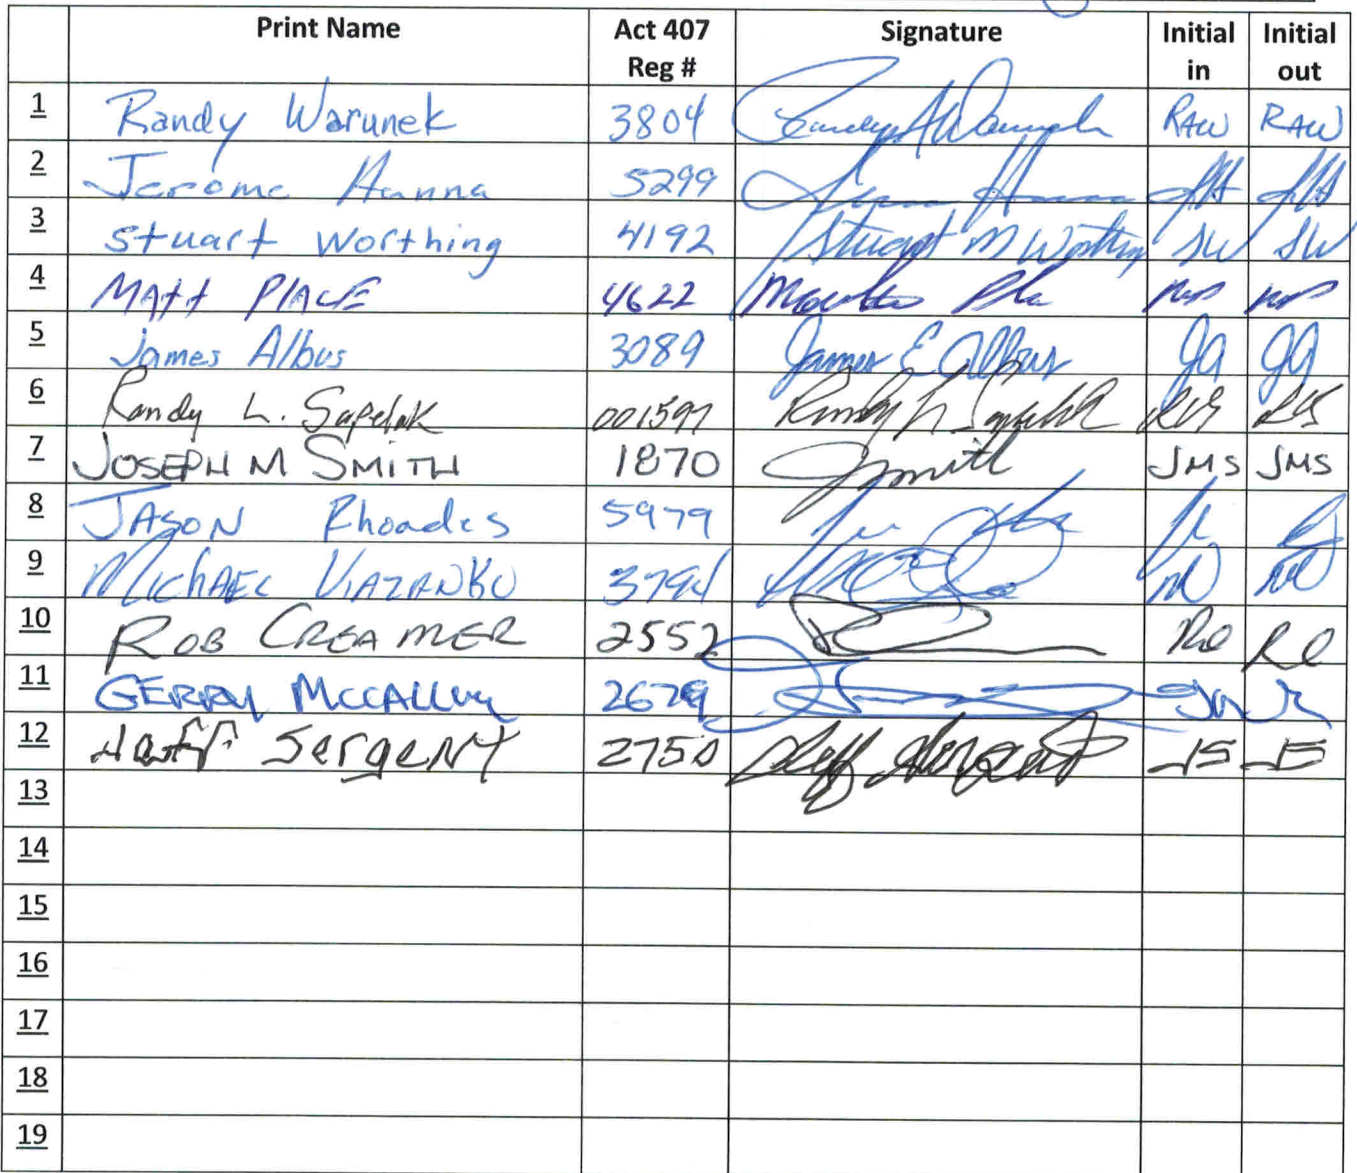 Print Name Act 407 Reg # Signature Initial in Initial out
1 Randy Warunek 3804 Randy A Warunek RAW RAW
2 Jerome Hanna 5299 JH JH
3 Stuart Worthing 4192 Stuart M Worthing SW SW
4 MATT PLACE 4622
5 James Albus 3089 James E Albus JA JA
6 Randy L. Sapelak 001597 Randy L Sapelak RLS RLS
7 JOSEPH M SMITH 1870 JMSmith JMS JMS
8 JASON Rhoades 5979
9 MICHAEL 3794
10 ROB CREAMER 2552 RC RC
11 GERRY McCALLUM 2679
12 Jeff Sergent 2750 Jeff Sergent JS JS
13
14
15
16
17
18
19